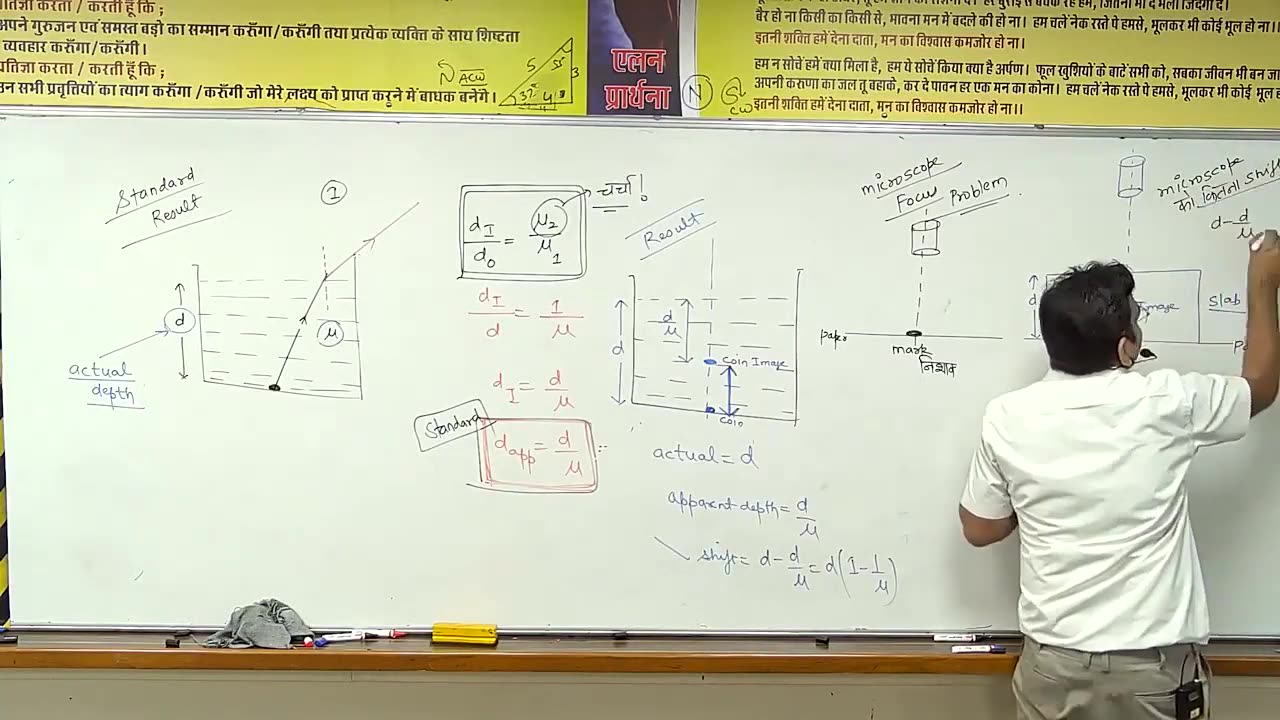 अपने गुरुजन एवं समस्त बड़ो का सम्मान करुँगा/करुँगी तथा प्रत्येक व्यक्ति के साथ शिष्टता
व्यवहार करुँगा/करुँगी।
करता / करती हूँ कि ;
उन सभी प्रवृत्तियों का त्याग करुँगा /करुँगी जो मेरे लक्ष्य को प्राप्त करने में बाधक बनेंगे।
N ACW
5
53°
3
37°
4
एलन
प्रार्थना
N
CW
बैर हो ना किसी का किसी से, भावना मन में बदले की हो ना। हम चलें नेक रस्ते पे हमसे, भूलकर भी कोई भूल हो ना।।
इतनी शक्ति हमें देना दाता, मन का विश्वास कमजोर हो ना।
हम न सोचें हमें क्या मिला है, हम ये सोचें किया क्या है अर्पण। फूल खुशियों के बाटें सभी को, सबका जीवन भी बन
अपनी करुणा का जल तू बहाके, कर दे पावन हर एक मन का कोना। हम चलें नेक रस्ते पे हमसे, भूलकर भी कोई भूल
इतनी शक्ति हमें देना दाता, मन का विश्वास कमजोर हो ना।।
Standard
Result
1
d
μ
actual
depth
d_I/d_o = μ_2/μ_1
चर्चा!
d_I/d = 1/μ
d_I = d/μ
Standard
d_app = d/μ
Result
d
d/μ
Coin Image
Coin
actual = d
apparent depth = d/μ
shift = d - d/μ = d(1 - 1/μ)
microscope
Focus Problem
paper
mark
निशान
microscope
को कितना shift
d - d/μ
d
Image
Slab